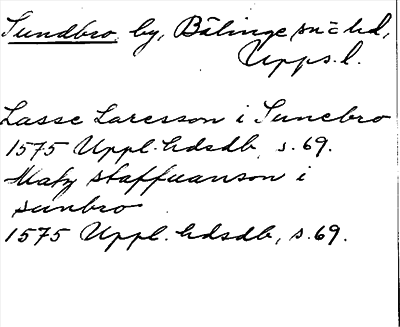 Sundbro by, Bälinge sn o hd,
Upps.l.
Lasse Laresson i Sunebro
1575 Uppl. hdsdb s.69.
Matz Staffuanson i
sunbro
1575 Uppl. hdsdb, s.69.